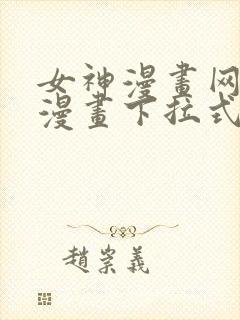 女神漫畫网
漫畫下拉式
趙崇義